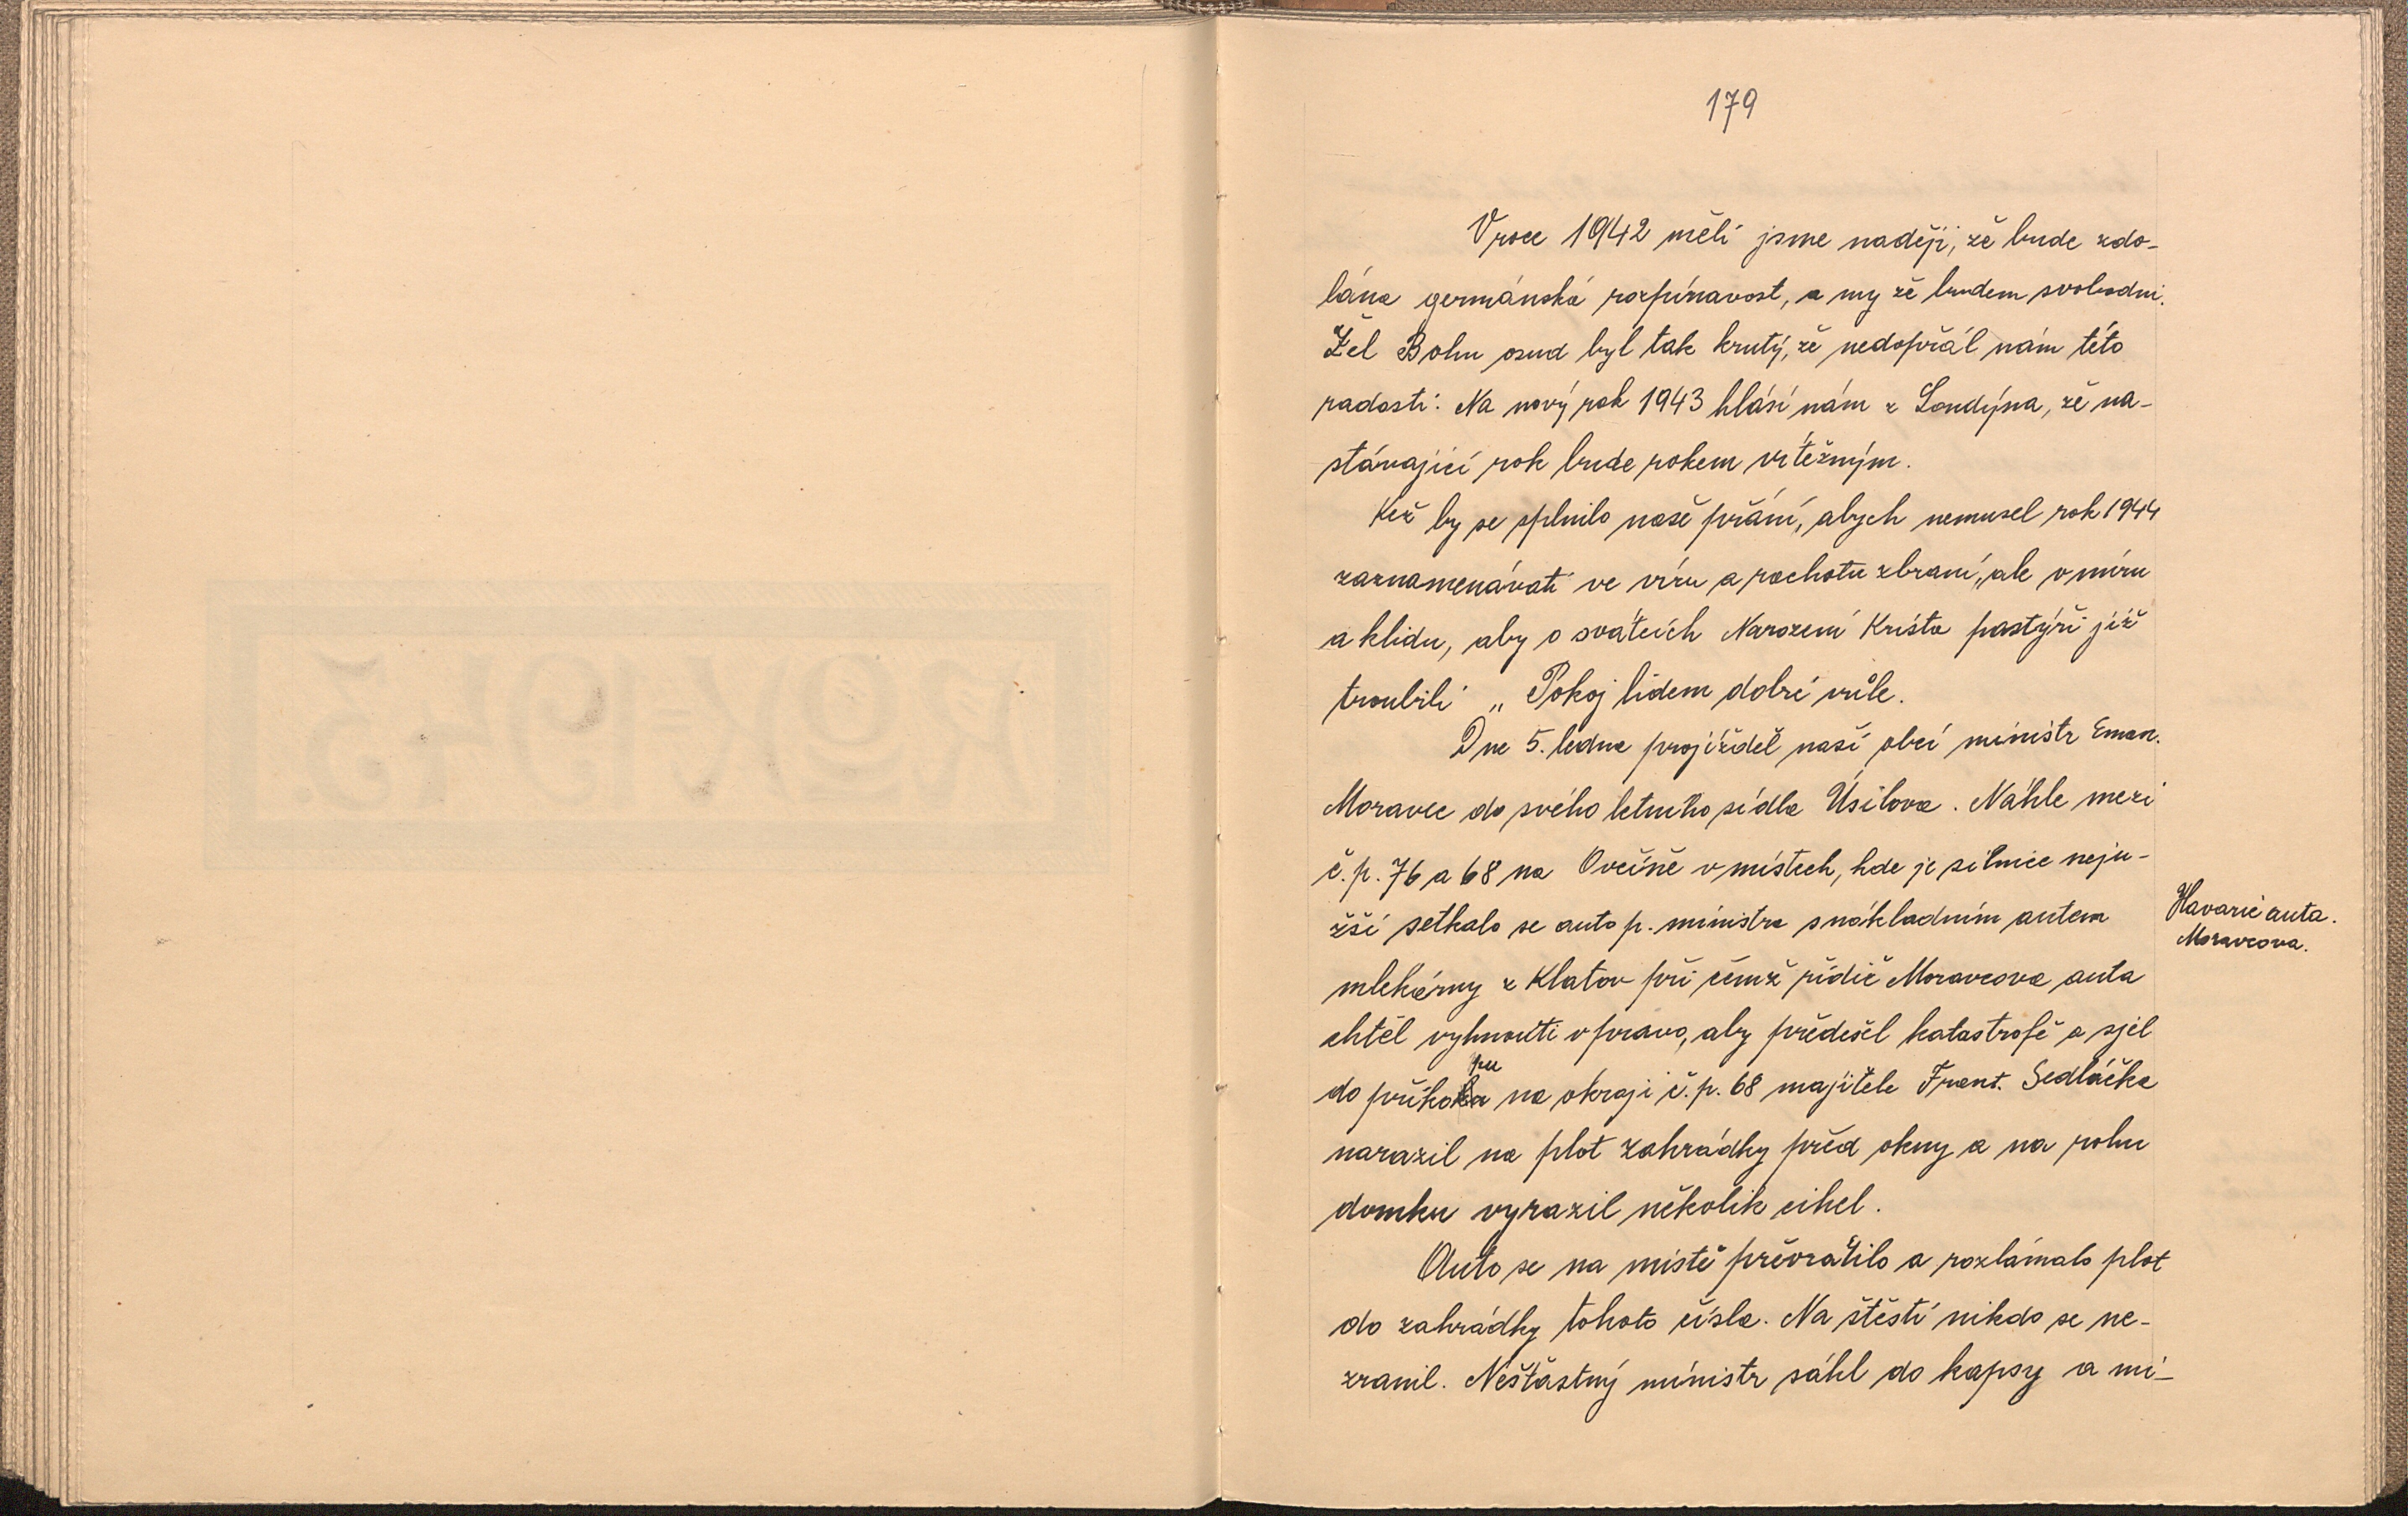 179
V roce 1942 měli jsme naději, že bude zdo-
lána germánská rozpínavost, a my že budem svobodni.
Žel Bohu osud byl tak krutý, že nedopřál nám této
radosti. Na nový rok 1943 hlásí nám z Londýna, že na-
stávající rok bude rokem vítězným.
Kež by se splnilo naše přání, abych nemusel rok 1944
zaznamenávati ve víru a rachotu zbraní, ale v míru
a klidu, aby o svátcích Narození Krista pastýři již
troubili „Pokoj lidem dobré vůle.
Dne 5. ledna projížděl naší obcí ministr Eman.
Moravec do svého letního sídla Úsilova. Náhle mezi
č.p. 76 a 68 na Ovčíně v místech, kde je silnice neju-
žší setkalo se auto p. ministra s nákladním autem
Havarie auta.
Moravcova.
mlekárny z Klatov při čemž řidič Moravcova auta
chtěl vyhnouti vpravo, aby předešel katastrofě a sjel
do příkopu na okraji č.p. 68 majitele Frant. Sedláčka
narazil na plot zahrádky před okny a na rohu
domku vyrazil několik cihel.
Auto se na místě převrátilo a rozlámalo plot
do zahrádky tohoto čísla. Na štěstí nikdo se ne-
zranil. Nešťastný ministr sáhl do kapsy a mí-